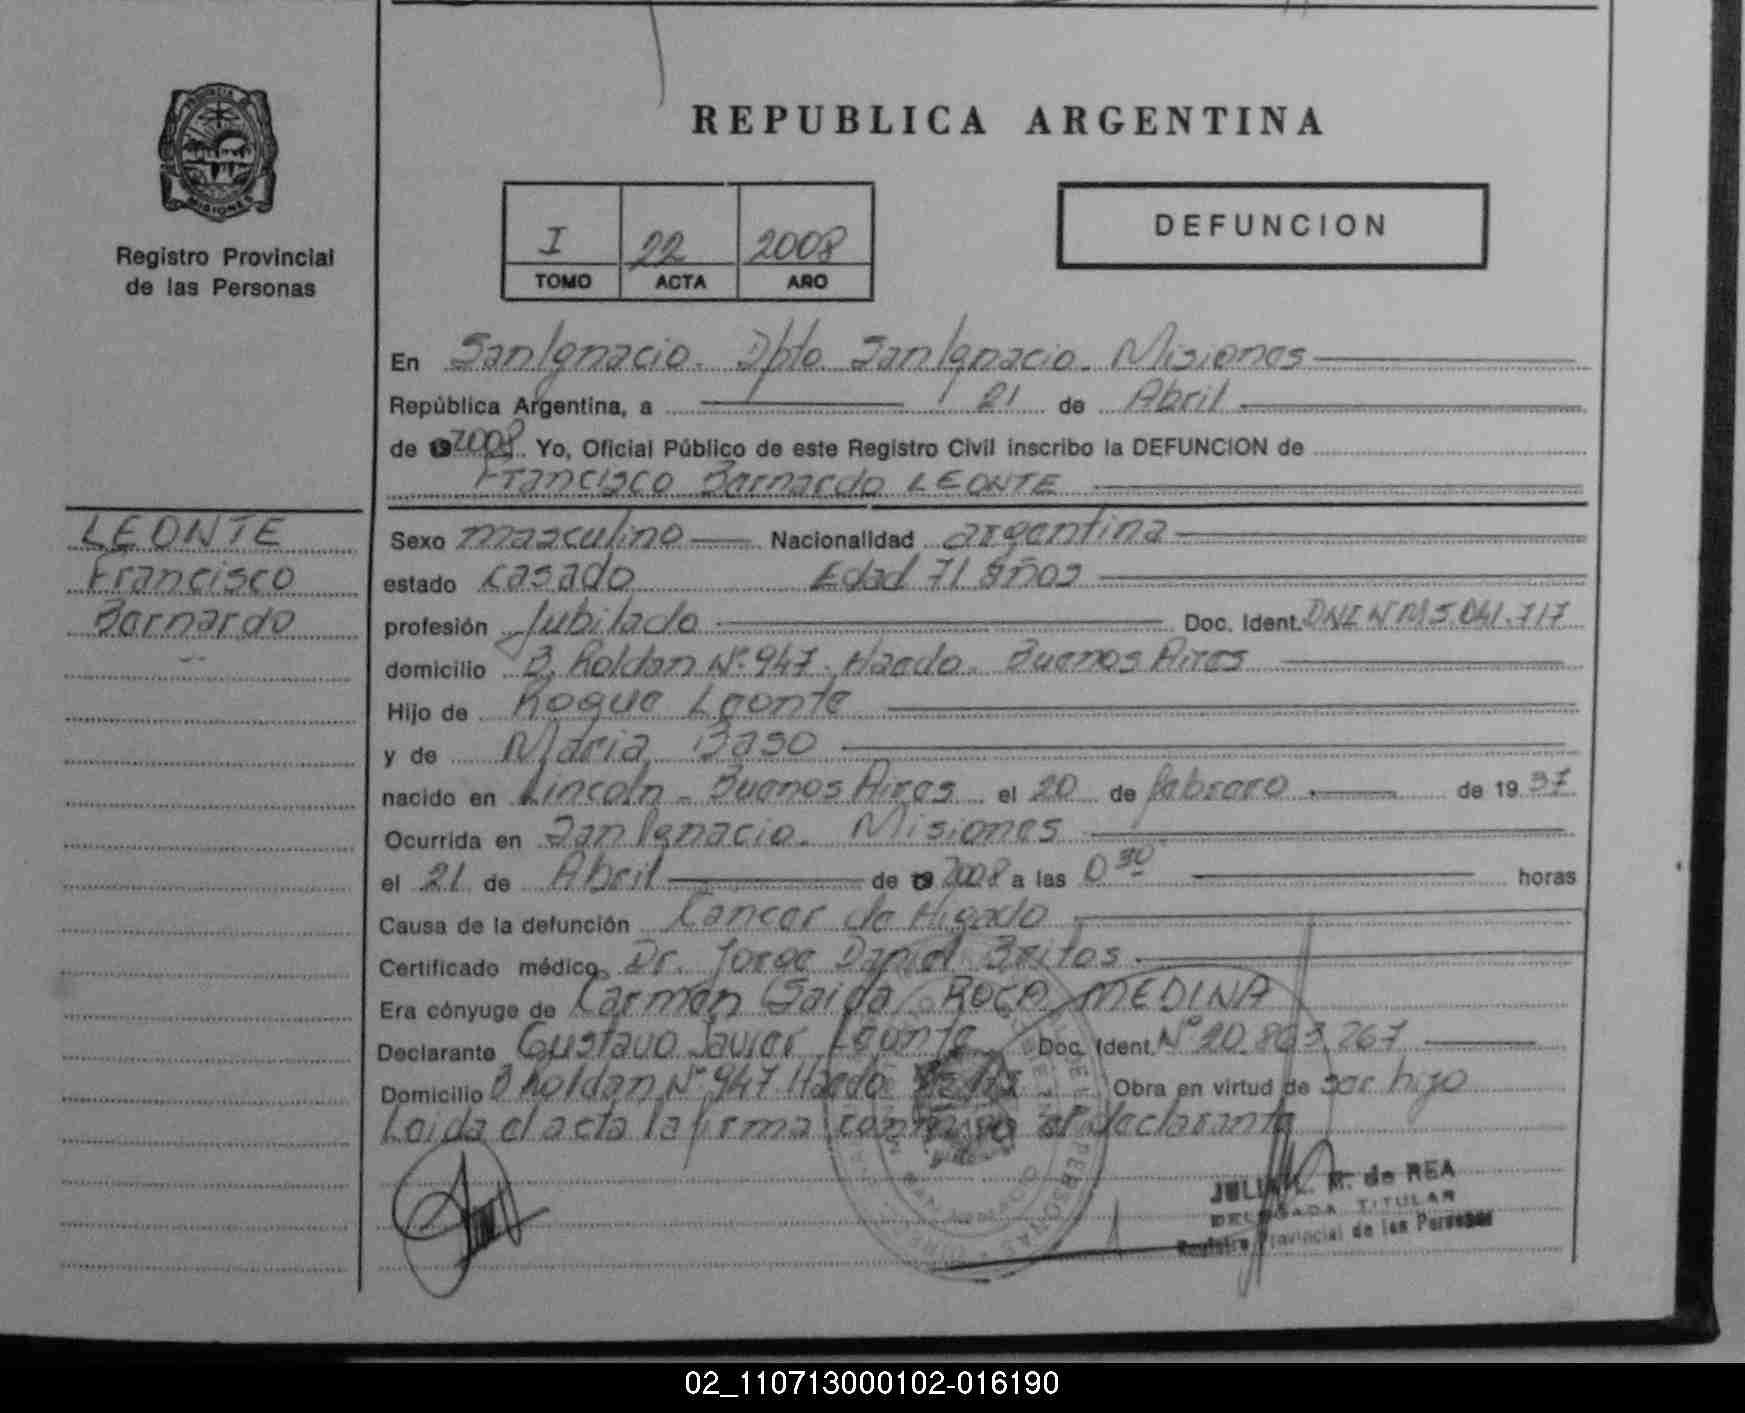 REPUBLICA ARGENTINA
PROVINCIA DE
MISIONES
Registro Provincial
de las Personas
I 22 2008
TOMO ACTA AÑO
DEFUNCION
En San Ignacio. Dpto San Ignacio. Misiones
República Argentina, a 21 de Abril
de 19 2008. Yo, Oficial Público de este Registro Civil inscribo la DEFUNCION de
Francisco Bernardo LEONTE
LEONTE
Francisco
Bernardo
Sexo masculino Nacionalidad argentina
estado casado Edad 71 años
profesión Jubilado Doc. Ident. DNI Nº M 5.041.717
domicilio B. Roldan Nº 947. Haedo. Buenos Aires
Hijo de Roque Leonte
y de Maria Baso
nacido en Lincoln - Buenos Aires el 20 de febrero de 19 37
Ocurrida en San Ignacio. Misiones
el 21 de Abril de 19 2008 a las 0 30 horas
Causa de la defunción Cancer de Higado
Certificado médico Dr. Jorge Daniel Britos
Era cónyuge de Carmen Saida ROCA MEDINA
Declarante Gustavo Javier Leonte Doc. Ident. Nº 20.863.267
Domicilio B Roldan Nº 947 Haedo Obra en virtud de ser hijo
Leida el acta la firma conmigo el declarante
JULIA L. M. de REA
DELEGADA TITULAR
Registro Provincial de las Personas
02_110713000102-016190